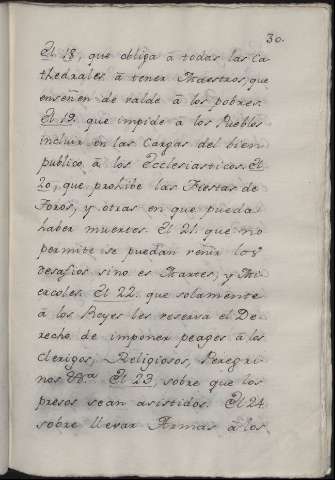 30.
El 18, que obliga à todas las Ca
thedrales à tener Maestros, que
enseñen de valde à los pobres.
El 19. que impide à los Pueblos
incluir en las Cargas del bien
publico à los Ecclesiasticos. El
20, que prohibe las Fiestas de
Toros, y otras en que pueda
haber muertes. El 21. que no
permite se puedan reñir los
desafios sino es Martes, y Mi
ercoles. El 22. que solamente
à los Reyes les reserva el De
recho de imponer peages à los
Clerigos, Religiosos, Peregri
nos &a. El 23, sobre que los
presos sean asistidos. El 24
sobre llevar Armas à los